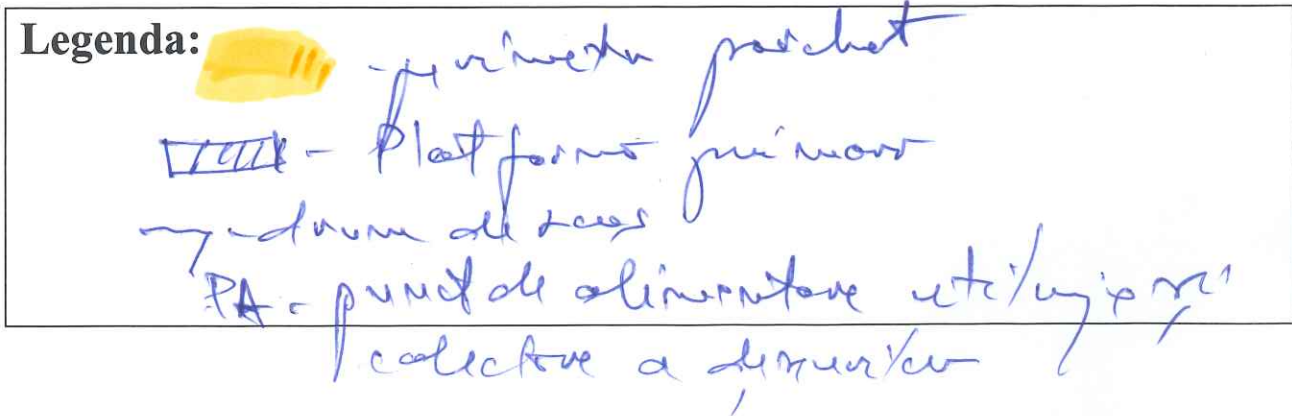 Legenda: - perimetru parchet
- Platforma primara
- drum de acces
PA - punct de alimentare utilaje și
colectare a deșeurilor